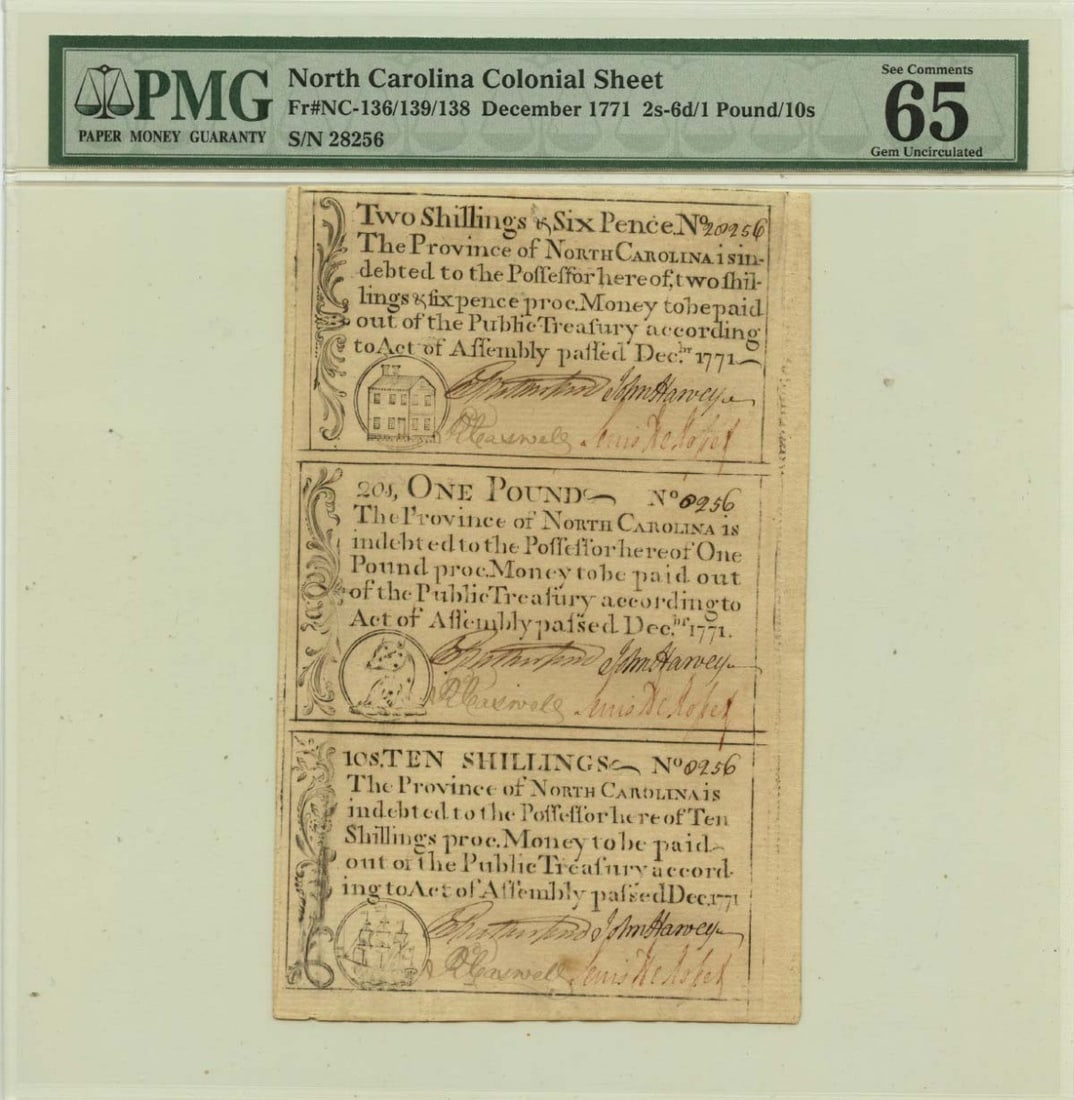 PMG
PAPER MONEY GUARANTY
North Carolina Colonial Sheet
Fr#NC-136/139/138 December 1771 2s-6d/1 Pound/10s
S/N 28256
See Comments
65
Gem Uncirculated
Two Shillings & Six Pence. No. 28256
The Province of NORTH CAROLINA is in-
debted to the Poſſeſſor here of, two ſhil-
lings & ſix pence proc. Money to be paid
out of the Public Treaſury according
to Act of Aſſembly paſſed Dec.br 1771
John Harvey
RCaswell
20s, ONE POUND No 8256
The Province of NORTH CAROLINA is
indebted to the Poſſeſſor here of One
Pound proc. Money to be paid out
of the Public Treaſury according to
Act of Aſſembly paſsed Dec.br 1771.
John Harvey
RCaswell
10s. TEN SHILLINGS No 8256
The Province of NORTH CAROLINA is
indebted to the Poſſeſſor here of Ten
Shillings proc. Money to be paid
out of the Public Treaſury accord-
ing to Act of Aſſembly paſsed Dec. 1771
John Harvey
RCaswell